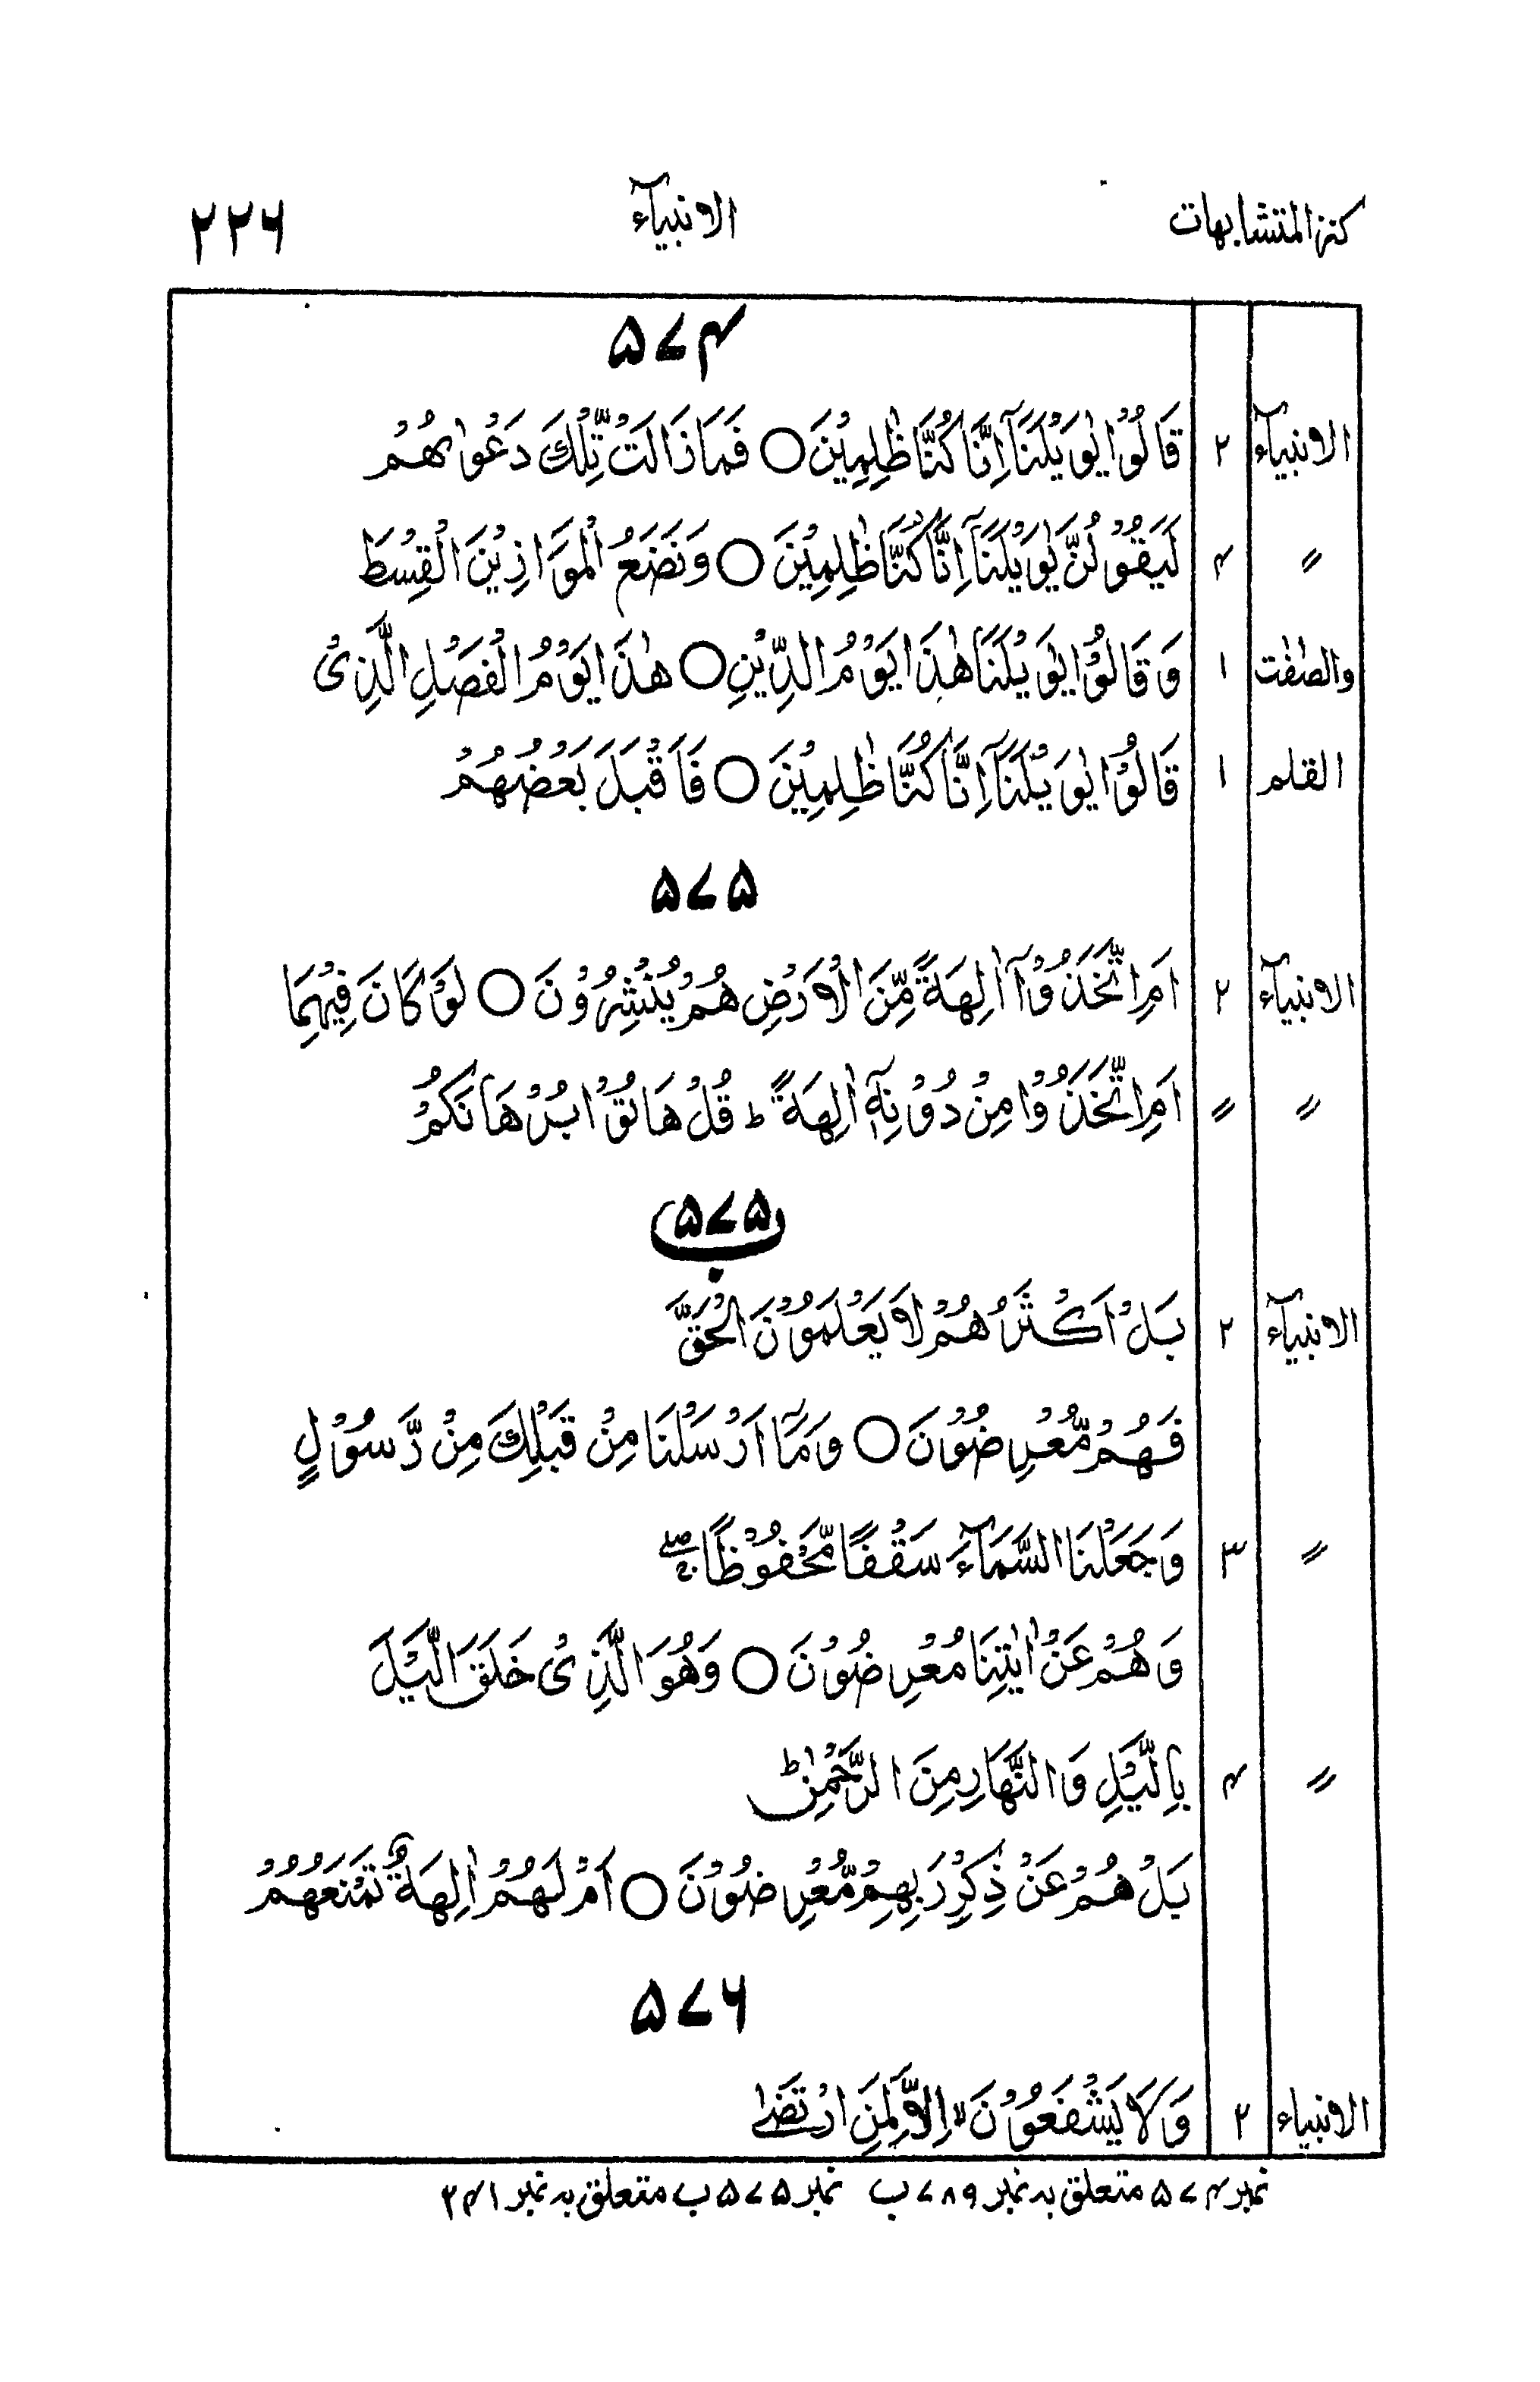 کنز المتشابہات الانبیآء ۲۲۶
۵۷۴
الانبیآء ۲ قَالُوْا یٰوَیْلَنَاۤ اِنَّا كُنَّا ظٰلِمِیْنَ ○ فَمَا زَالَتْ تِّلْكَ دَعْوٰىهُمْ
〃 ۴ لَیَقُوْلُنَّ یٰوَیْلَنَاۤ اِنَّا كُنَّا ظٰلِمِیْنَ ○ وَنَضَعُ الْمَوَازِیْنَ الْقِسْطَ
والصّٰفّٰت ۱ وَقَالُوْا یٰوَیْلَنَا هٰذَا یَوْمُ الدِّیْنِ ○ هٰذَا یَوْمُ الْفَصْلِ الَّذِیْ
القلم ۱ قَالُوْا یٰوَیْلَنَاۤ اِنَّا كُنَّا ظٰلِمِیْنَ ○ فَاَقْبَلَ بَعْضُهُمْ
۵۷۵
الانبیآء ۲ اَمِ اتَّخَذُوْۤا اٰلِهَةً مِّنَ الْاَرْضِ هُمْ یُنْشِرُوْنَ ○ لَوْ كَانَ فِیْهِمَا
〃 〃 اَمِ اتَّخَذُوْا مِنْ دُوْنِهٖۤ اٰلِهَةً ؕ قُلْ هَاتُوْا بُرْهَانَكُمْ
۵۷۵ ب
الانبیآء ۲ بَلْ اَكْثَرُهُمْ لَا یَعْلَمُوْنَ الْحَقَّ
فَهُمْ مُّعْرِضُوْنَ ○ وَمَاۤ اَرْسَلْنَا مِنْ قَبْلِكَ مِنْ رَّسُوْلٍ
〃 ۳ وَجَعَلْنَا السَّمَآءَ سَقْفًا مَّحْفُوْظًا ۚۖ
وَهُمْ عَنْ اٰیٰتِنَا مُعْرِضُوْنَ ○ وَهُوَ الَّذِیْ خَلَقَ الَّیْلَ
〃 ۴ بِالَّیْلِ وَالنَّهَارِ مِنَ الرَّحْمٰنِ ؕ
بَلْ هُمْ عَنْ ذِكْرِ رَبِهِمْ مُّعْرِضُوْنَ ○ اَمْ لَهُمْ اٰلِهَةٌ تَمْنَعُهُمْ
۵۷۶
الانبیاء ۲ وَلَا یَشْفَعُوْنَ ۙ اِلَّا لِمَنِ ارْتَضٰى
نمبر ۵۷۴ متعلق بہ نمبر ۷۸۹ ب نمبر ۵۷۵ ب متعلق بہ نمبر ۳۴۱